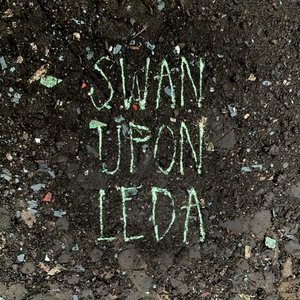 SWAN
UPON
LEDA